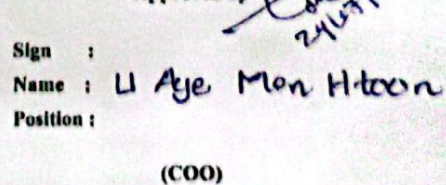 Sign :
Name : U Aye Mon Htoon
Position :
(COO)